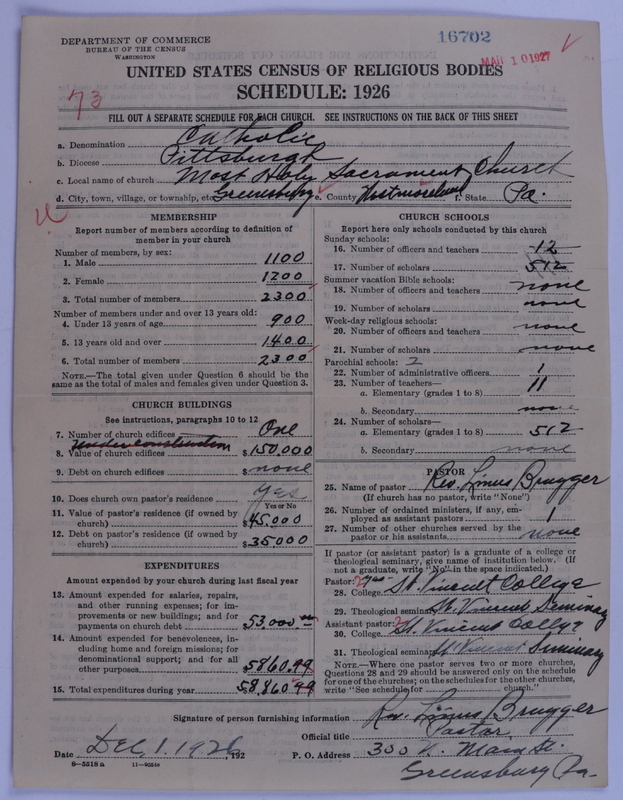 16702
MAR 10 1927
DEPARTMENT OF COMMERCE
BUREAU OF THE CENSUS
WASHINGTON
UNITED STATES CENSUS OF RELIGIOUS BODIES
SCHEDULE: 1926
73
FILL OUT A SEPARATE SCHEDULE FOR EACH CHURCH. SEE INSTRUCTIONS ON THE BACK OF THIS SHEET
a. Denomination Catholic
b. Diocese Pittsburgh
c. Local name of church Most Holy Sacrament Church
d. City, town, village, or township, etc. Greensburg e. County Westmoreland f. State Pa.
MEMBERSHIP
Report number of members according to definition of
member in your church
Number of members, by sex:
1. Male 1100
2. Female 1200
3. Total number of members 2300
Number of members under and over 13 years old:
4. Under 13 years of age 900
5. 13 years old and over 1400
6. Total number of members 2300
NOTE.—The total given under Question 6 should be the
same as the total of males and females given under Question 3.
CHURCH BUILDINGS
See instructions, paragraphs 10 to 12
7. Number of church edifices One
Under construction
8. Value of church edifices $150,000
9. Debt on church edifices $none
10. Does church own pastor's residence Yes
Yes or No
11. Value of pastor's residence (if owned by
church) $45,000
12. Debt on pastor's residence (if owned by
church) $35,000
EXPENDITURES
Amount expended by your church during last fiscal year
13. Amount expended for salaries, repairs,
and other running expenses; for im-
provements or new buildings; and for
payments on church debt $53,000.00
14. Amount expended for benevolences, in-
cluding home and foreign missions; for
denominational support; and for all
other purposes 5860.99
15. Total expenditures during year 58,860.99
CHURCH SCHOOLS
Report here only schools conducted by this church
Sunday schools:
16. Number of officers and teachers 12
17. Number of scholars 512
Summer vacation Bible schools:
18. Number of officers and teachers none
19. Number of scholars none
Week-day religious schools:
20. Number of officers and teachers none
21. Number of scholars none
Parochial schools: 2
22. Number of administrative officers 1
23. Number of teachers—
a. Elementary (grades 1 to 8) 11
b. Secondary none
24. Number of scholars—
a. Elementary (grades 1 to 8) 512
b. Secondary none
PASTOR
25. Name of pastor Rev. Linus Brugger
(If church has no pastor, write "None")
26. Number of ordained ministers, if any, em-
ployed as assistant pastors 1
27. Number of other churches served by the
pastor or his assistants none
If pastor (or assistant pastor) is a graduate of a college or
theological seminary, give name of institution below. (If
not a graduate, write "No" in the space indicated.)
Pastor: 2
28. College St. Vincent College
29. Theological seminary St. Vincent Seminary
Assistant pastor: 2
30. College St. Vincent College
31. Theological seminary St. Vincent Seminary
NOTE.—Where one pastor serves two or more churches,
Questions 28 and 29 should be answered only on the schedule
for one of the churches; on the schedules for the other churches,
write "See schedule for church."
Signature of person furnishing information Rev. Linus Brugger
Official title Pastor
Date Dec. 1. 1926, 192 P. O. Address 300 N. Main St.
8-5518 a 11-90549 Greensburg Pa.